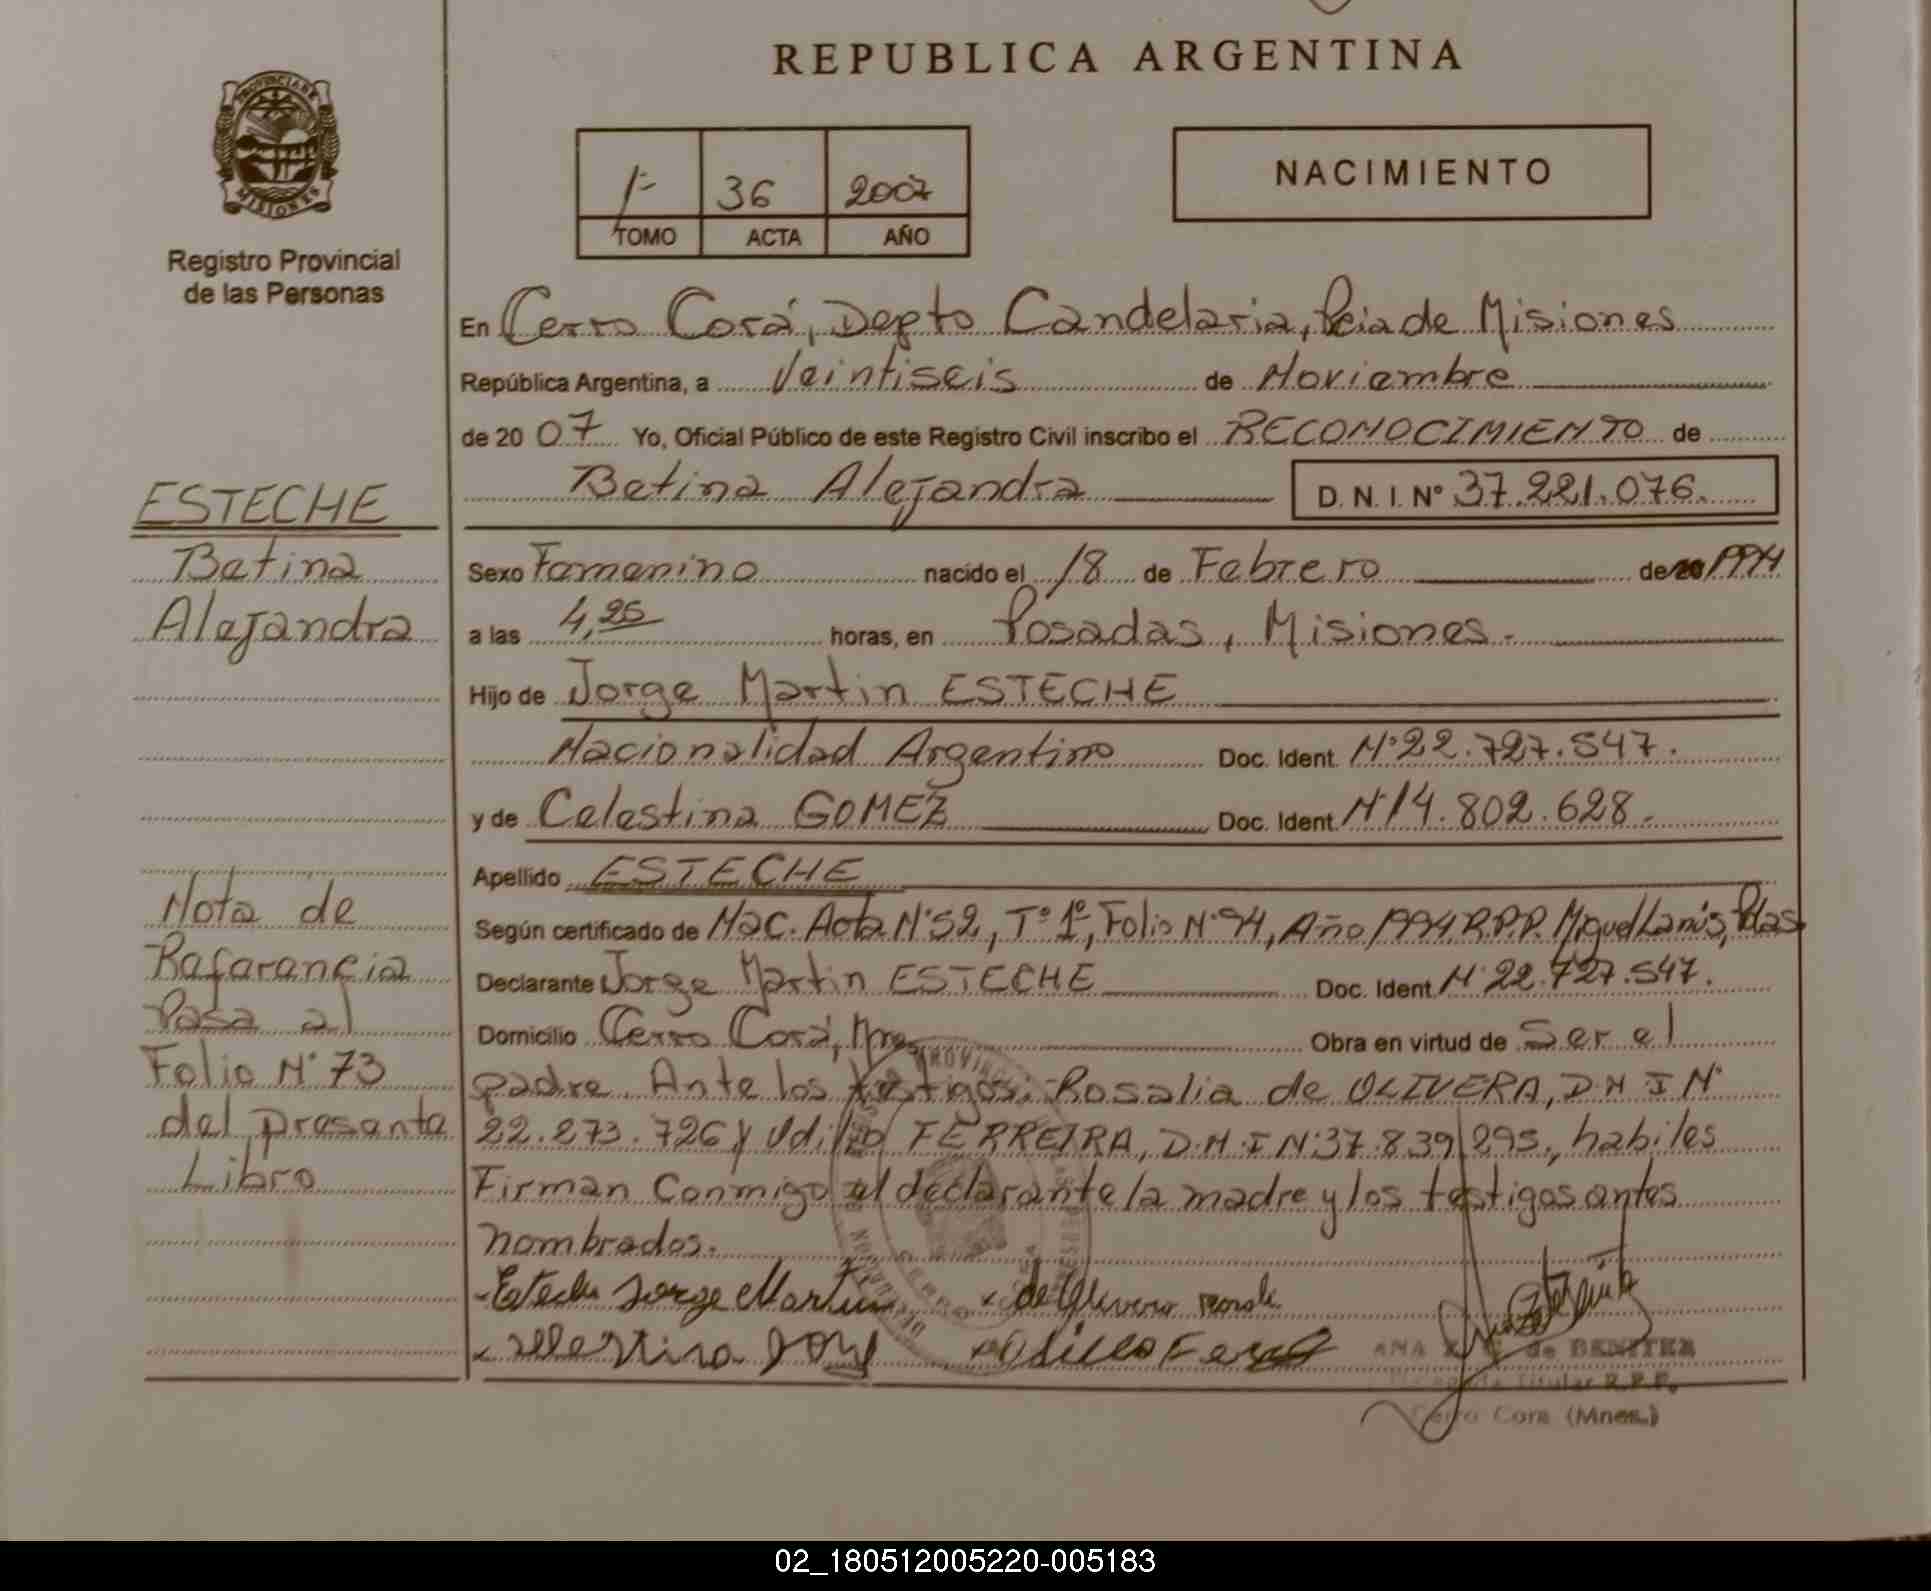 REPUBLICA ARGENTINA
PROVINCIA DE
MISIONES
Registro Provincial
de las Personas
1º 36 2007
TOMO ACTA AÑO
NACIMIENTO
En Cerro Corá, Depto Candelaria, Pcia de Misiones
República Argentina, a Veintiseis de Noviembre
de 20 07 Yo, Oficial Público de este Registro Civil inscribo el RECONOCIMIENTO de
Betina Alejandra D. N. I. Nº 37.221.076.
Sexo Femenino nacido el 18 de Febrero de 1994
a las 4,25 horas, en Posadas, Misiones.
Hijo de Jorge Martin ESTECHE
Nacionalidad Argentino Doc. Ident. Nº 22.727.547.
y de Celestina GOMEZ Doc. Ident. Nº 14.802.628.
Apellido ESTECHE
Según certificado de Nac. Acta Nº 52, Tº 1º, Folio Nº 94, Año 1994 R.P.P. Miguel Lanús, Pdas.
Declarante Jorge Martin ESTECHE Doc. Ident. Nº 22.727.547.
Domicilio Cerro Corá, Mnes. Obra en virtud de Ser el
padre. Ante los testigos: Rosalia de OLIVERA, D.N.I Nº
22.273.726 y Udilio FERREIRA, D.N.I Nº 37.839.295, habiles
Firman Conmigo el declarante la madre y los testigos antes
nombrados.
ESTECHE
Betina
Alejandra
Nota de
Referencia
Pasa al
Folio Nº 73
del presente
Libro
Esteche Jorge Martin
de Olivera
ANA de BENITEZ
Titular R.P.P.
Cerro Cora (Mnes.)
02_180512005220-005183